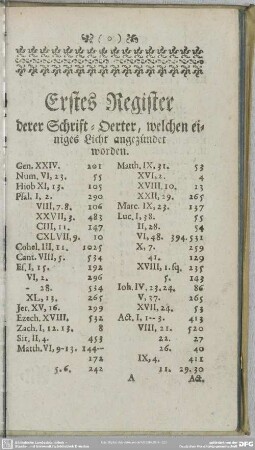 ( o )
Erstes Register
derer Schrift-Oerter, welchen ei-
niges Licht angezündet
worden.
Gen. XXIV. 201
Num. VI, 23. 55
Hiob XI, 13. 105
Psal. I, 2. 290
VIII, 7. 8. 106
XXVII, 3. 483
CIII, 11. 147
CXLVII, 9. 10
Cohel. III, 11. 1025
Cant. VIII, 5. 534
Es. I, 15. 192
VI, 2. 296
- 28. 534
XL, 13. 265
Jer. XV, 16. 299
Ezech. XVIII. 532
Zach. I, 12. 13. 8
Sir. II, 4. 453
Matth. VI, 9-13. 144--
172
5. 6. 242
Matth. IX, 31. 53
XVI, 2. 4
XVIII, 10. 13
XXII, 29. 265
Marc. IX, 23. 137
Luc. I, 38. 55
II, 28. 54
VI, 48. 394. 531
X, 7. 259
41. 129
XVIII, 1. sq. 235
5. 143
Ioh. IV, 23. 24. 86
V, 37. 265
XVII, 24. 53
Act. I, 1--3. 413
VIII, 21. 520
22. 27
26. 40
IX, 4. 411
11. 29. 30
A Act.